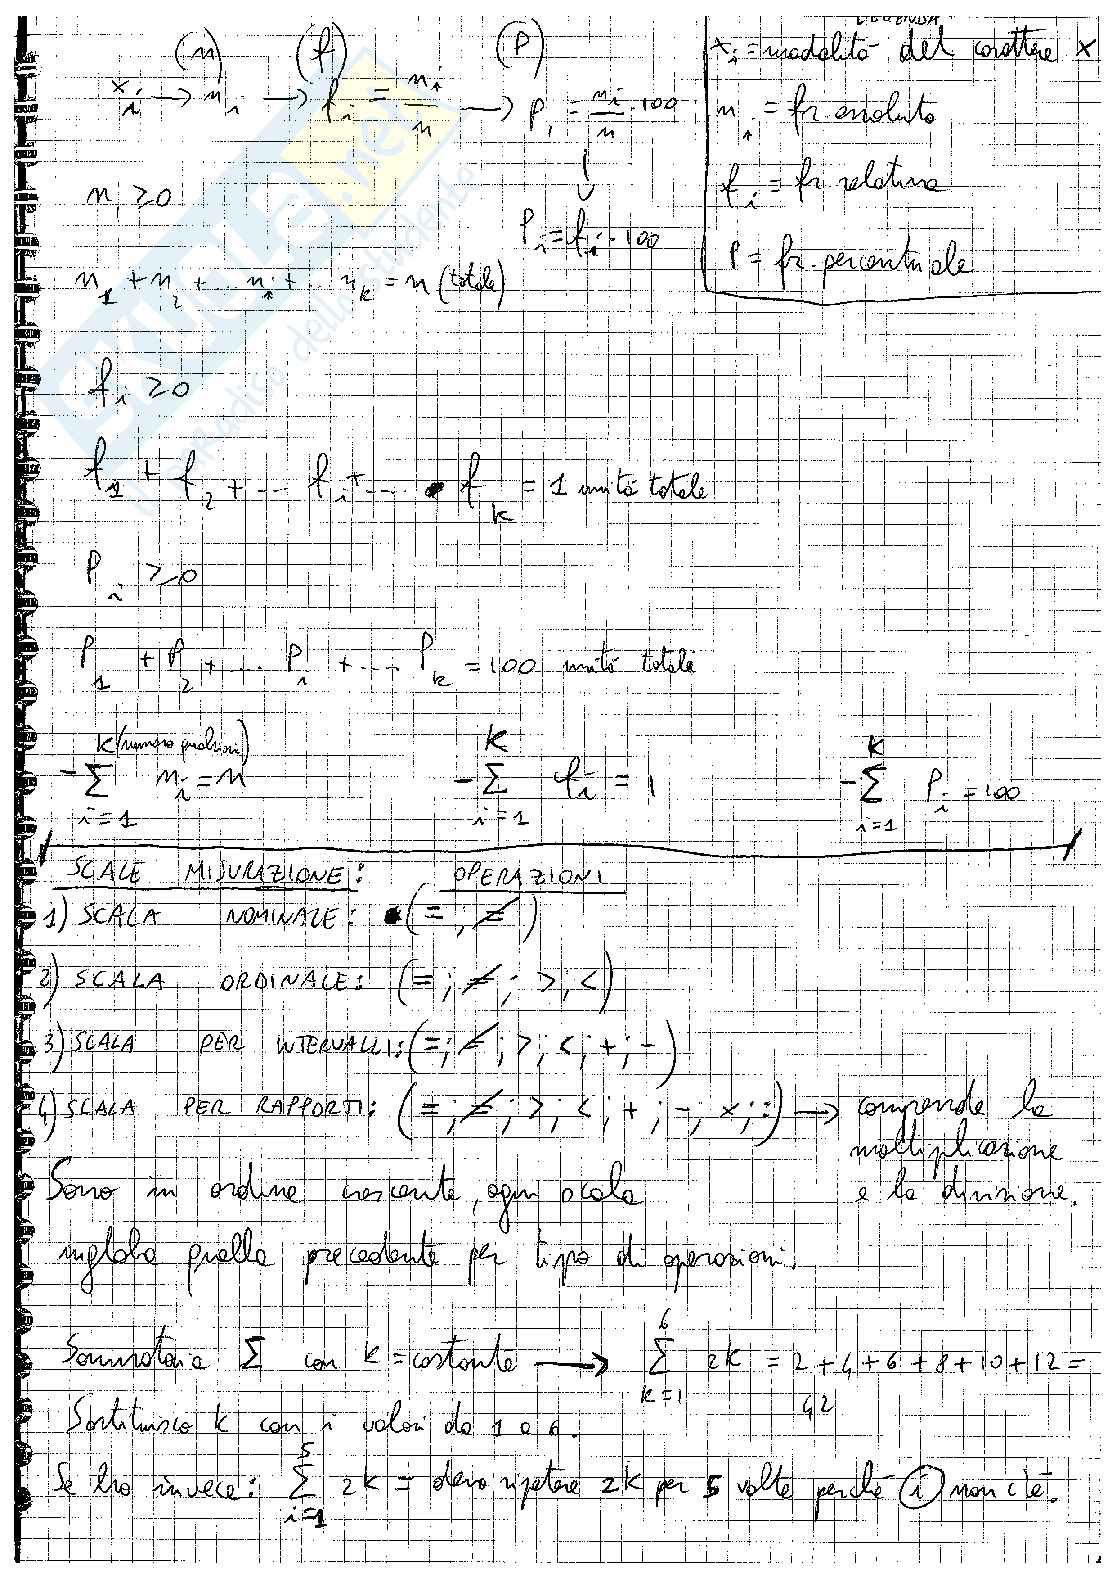 (n) (f) (P)
xᵢ → nᵢ → fᵢ = nᵢ/n → Pᵢ = nᵢ/n · 100
↓
Pᵢ = fᵢ · 100
LEGENDA
xᵢ = modalità del carattere X
nᵢ = fr assoluta
fᵢ = fr relativa
P = fr percentuale
nᵢ ≥ 0
n₁ + n₂ + .. nᵢ + nₖ = n (totale)
fᵢ ≥ 0
f₁ + f₂ + ... fᵢ + .... fₖ = 1 unità totale
Pᵢ ≥ 0
P₁ + P₂ + ... Pᵢ + .... Pₖ = 100 unità totale
- Σ (i=1, K (numero )) nᵢ = n - Σ (i=1, K) fᵢ = 1 - Σ (i=1, K) Pᵢ = 100
SCALE MISURAZIONE: OPERAZIONI
1) SCALA NOMINALE: (= ; ≠)
2) SCALA ORDINALE: (= ; ≠ ; > ; <)
3) SCALA PER INTERVALLI: (= ; ≠ ; > ; < ; + ; -)
4) SCALA PER RAPPORTI: (= ; ≠ ; > ; < ; + ; - ; × ; :) → comprende la
moltiplicazione
e la divisione.
Sono in ordine crescente, ogni scala
ingloba quella precedente per tipo di operazioni.
Sommatoria Σ con K = costante → Σ (k=1, 6) 2K = 2 + 4 + 6 + 8 + 10 + 12 =
42
Sostituisco K con i valori da 1 a 6.
Se ho invece: Σ (i=1, 5) 2K = devo ripetere 2K per 5 volte perché (i) non c'è.
skuola.net
il paradiso dello studente